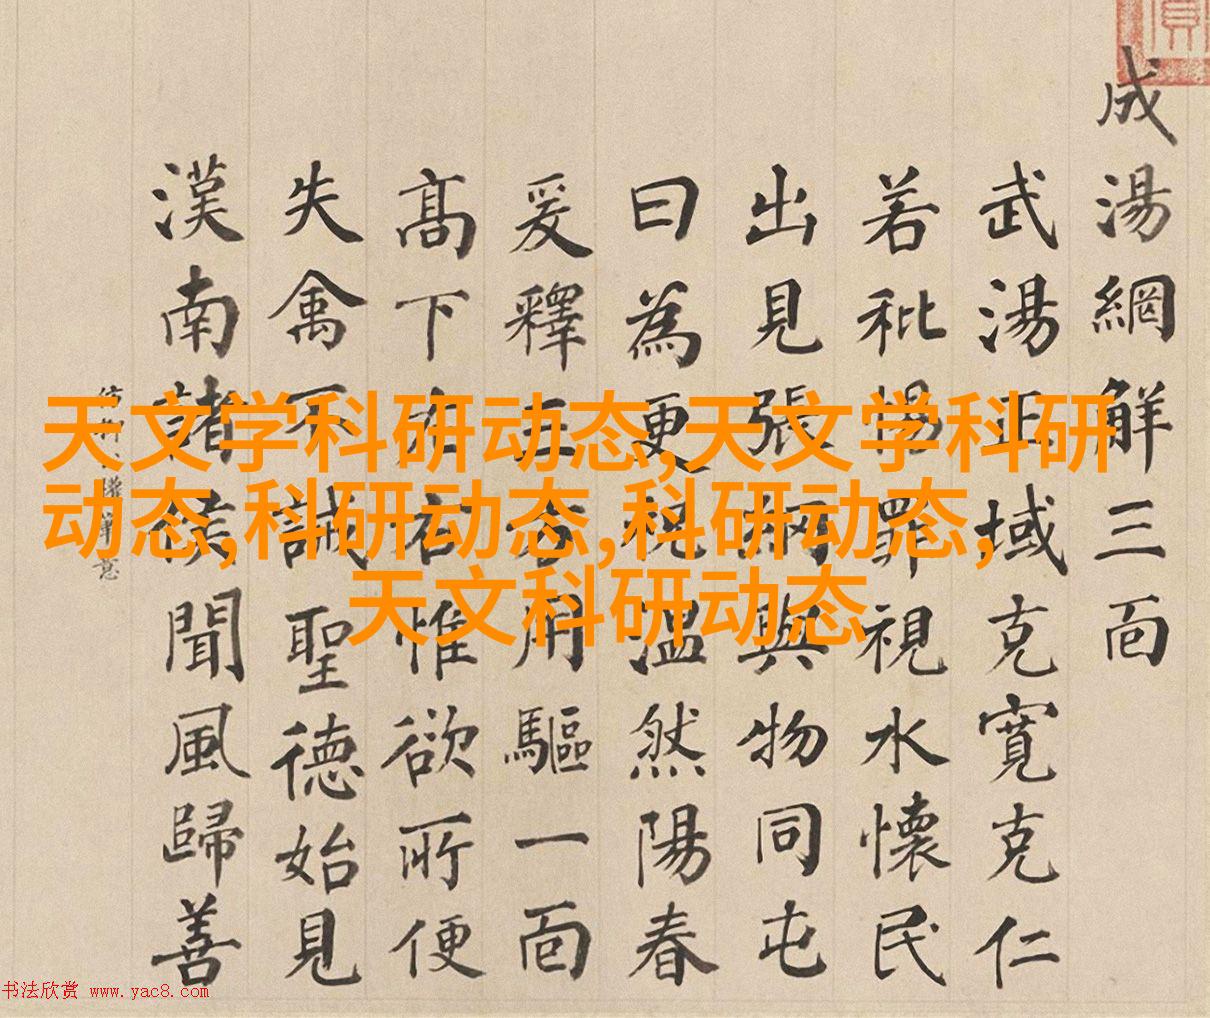 成湯網解三面
武湯正域克寬克仁
若秕惕罪視水懷民
出見張網與物同屯
曰為更祝溫然陽春
爰釋三方用驅一面
高下左右惟欲所便
失禽不誡聖德始見
漢南諸侯聞風歸善
天文学科研动态,天文学科研
动态,科研动态,科研动态,
天文科研动态
书法欣赏 www.yac8.com